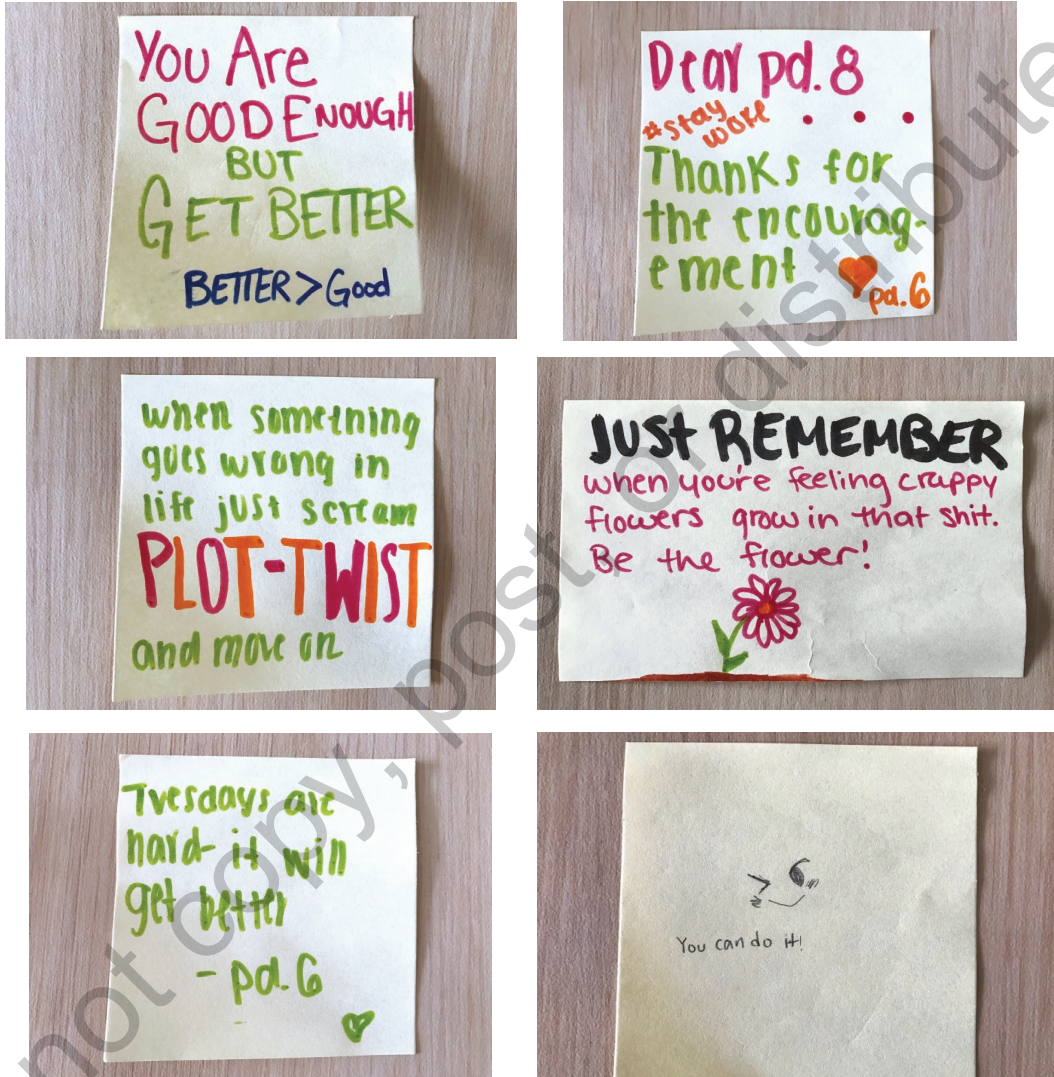 You Are
GOOD ENOUGH
BUT
GET BETTER
BETTER > Good
Dear pd. 8
#stay
woke
. . .
Thanks for
the encourag-
ement
pd. 6
when something
goes wrong in
life just scream
PLOT-TWIST
and move on
JUST REMEMBER
when you're feeling crappy
flowers grow in that shit.
Be the flower!
Tuesdays are
hard it will
get better
- pd. 6
You can do it!
not copy, post, or distribute